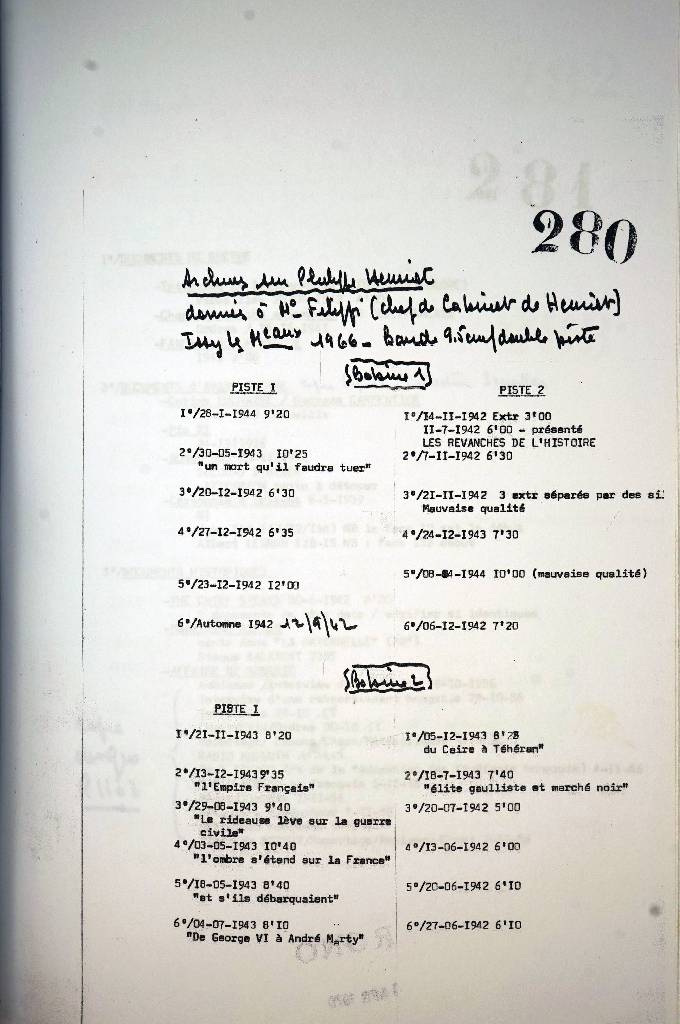 280
Archives sur Philippe Henriot
donnés à Mr Felippi (chef de Cabinet de Henriot)
Issy les Meaux 1966 - Bande 9.5cm/double piste
(Bobine 1)
PISTE I
I°/28-I-1944 9'20
2°/30-05-1943 I0'25
"un mort qu'il faudra tuer"
3°/20-I2-I942 6'30
4°/27-I2-I942 6'35
5°/23-I2-I942 I2'00
6°/Automne I942 12/9/42
PISTE 2
I°/I4-II-I942 Extr 3'00
II-7-I942 6'00 - présenté
LES REVANCHES DE L'HISTOIRE
2°/7-II-I942 6'30
3°/2I-II-I942 3 extr séparés par des sil
Mauvaise qualité
4°/24-I2-I943 7'30
5°/08-04-I944 I0'00 (mauvaise qualité)
6°/06-I2-I942 7'20
(Bobine 2)
PISTE I
I°/2I-II-I943 8'20
2°/I3-I2-I943 9'35
"l'Empire Français"
3°/29-08-I943 9'40
"Le rideause lève sur la guerre
civile"
4°/03-05-I943 I0'40
"l'ombre s'étend sur la France"
5°/I8-05-I943 8'40
"et s'ils débarquaient"
6°/04-07-I943 8'I0
"De George VI à André Marty"
I°/05-I2-I943 8'25
du Caire à Téhéran"
2°/I8-7-I943 7'40
"élite gaulliste et marché noir"
3°/20-07-I942 5'00
4°/I3-06-I942 6'00
5°/20-06-I942 6'I0
6°/27-06-I942 6'I0